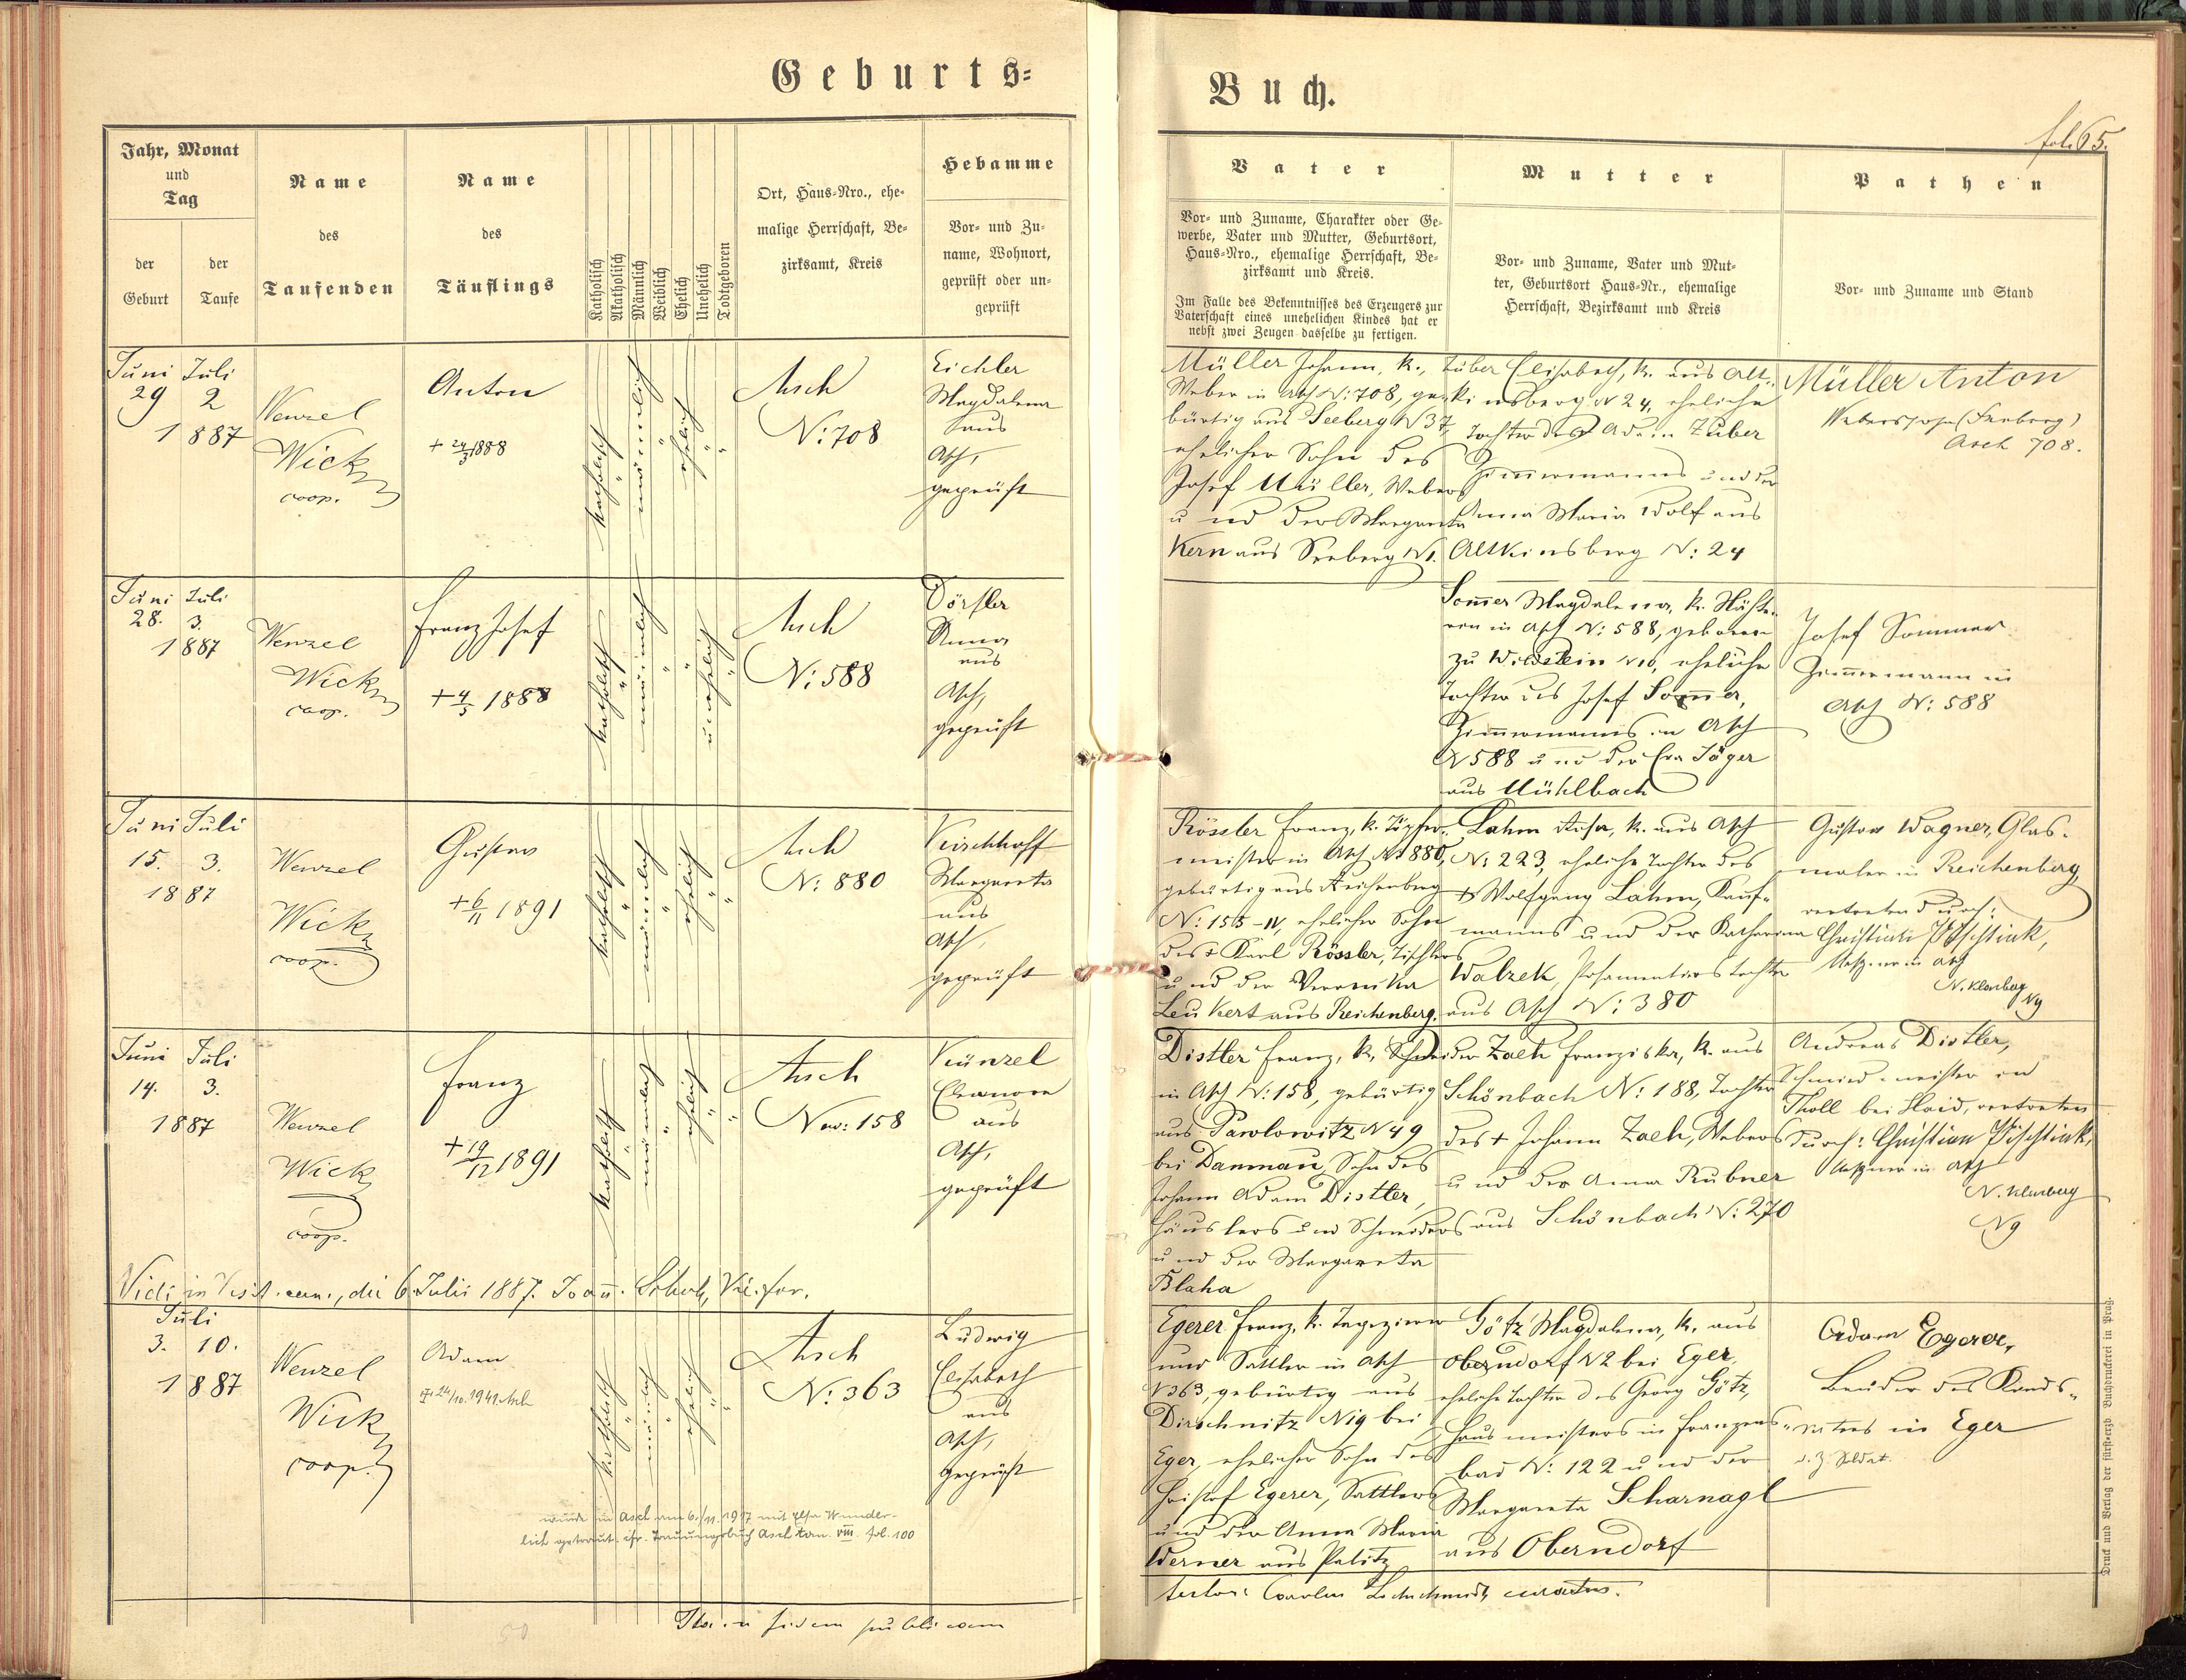 Geburts-
Buch.
fol. 65.
Jahr, Monat
und
Tag
der
Geburt
der
Taufe
Name
des
Taufenden
Name
des
Täuflings
Katholisch
Akatholisch
Männlich
Weiblich
Ehelich
Unehelich
Todtgeboren
Ort, Haus-Nro., ehe-
malige Herrschaft, Be-
zirksamt, Kreis
Hebamme
Vor- und Zu-
name, Wohnort,
geprüft oder un-
geprüft
Vater
Vor- und Zuname, Charakter oder Ge-
werbe, Vater und Mutter, Geburtsort,
Haus-Nro., ehemalige Herrschaft, Be-
zirksamt und Kreis.
Im Falle des Bekenntnisses des Erzeugers zur
Vaterschaft eines unehelichen Kindes hat er
nebst zwei Zeugen dasselbe zu fertigen.
Mutter
Vor- und Zuname, Vater und Mut-
ter, Geburtsort Haus-Nr., ehemalige
Herrschaft, Bezirksamt und Kreis
Pathen
Vor- und Zuname und Stand
Juni Juli
29 2
1887
Wenzel
Wick
coop.
Anton
+ 24/3 1888
katholisch
männlich
ehelich
Asch
N: 708
Eichler
Magdalena
aus
Asch,
geprüft
Müller Johann, k.,
Weber in Asch N: 708, ge-
bürtig aus Seeberg N 37,
ehelicher Sohn des
Josef Müller, Webers
und der Margareta
Kern aus Seeberg N 1.
Zuber Elisabeth, k. aus Alt-
kinsberg N 24, eheliche
Tochter des Adam Zuber
Zimmermanns und der
Anna Maria Wolf aus
Altkinsberg N: 24
Müller Anton
Weberssohn (Seeberg)
Asch 708.
Juni Juli
28. 3.
1887
Wenzel
Wick
coop.
Franz Josef
+ 4/5 1888
katholisch
männlich
unehelich
Asch
N: 588
Dörfler
Anna
aus
Asch,
geprüft
Sommer Magdalena, k. Nähte-
rin in Asch N: 588, geboren
zu Wildstein N 16, eheliche
Tochter des Josef Sommer,
Zimmermanns in Asch
N 588 und der Eva Jäger
aus Mühlbach
Josef Sommer
Zimmermann in
Asch N: 588
Juni Juli
15. 3.
1887
Wenzel
Wick
coop.
Gustav
+ 6/11 1891
katholisch
männlich
ehelich
Asch
N: 880
Kirschhoff
Margareta
aus
Asch,
geprüft
Rössler Franz, k. Töpfer-
meister in Asch N 880,
gebürtig aus Reichenberg
N: 155-IV, ehelicher Sohn
des + Karl Rössler, Tischlers
und der Veronika
Leukert aus Reichenberg.
Lahm Rosa, k. aus Asch
N: 223, eheliche Tochter des
+ Wolfgang Lahm, Kauf-
manns und der Katharina
Walzek, Posamentierstochter
aus Asch N: 380
Gustav Wagner, Glas-
maler in Reichenberg,
vertreten durch:
Christian Pischtiak,
Meßner in Asch
N. Klemberg
N9
Juni Juli
14. 3.
1887
Wenzel
Wick
coop.
Franz
+ 19/12 1891
katholisch
männlich
ehelich
Asch
Nro: 158
Künzel
Eleonora
aus
Asch,
geprüft
Distler Franz, k., Schneider
in Asch N: 158, gebürtig
aus Pawlowitz N 49
bei Damnau, Sohn des
Johann Adam Distler,
Häuslers und Schneiders
und der Margareta
Blaha
Zach Franziska, k. aus
Schönbach N: 188, Tochter
des + Johann Zach, Webers
und der Anna Rubner
aus Schönbach N: 270
Andreas Distler,
Schmiedmeister in
Tholl bei Haid, vertreten
durch: Christian Pischtiak,
Meßner in Asch
N. Klemberg
N9
Vidi in Visit. can., die 6. Julii 1887. Joan.
Juli
3. 10.
1887
Wenzel
Wick
coop.
Adam
24/10. 1941. Asch
katholisch
männlich
ehelich
Asch
N: 363
Ludwig
Elisabeth
aus
Asch,
geprüft
wurde in Asch am 6./11. 1917 mit Elsa Wunder-
lich getraut. cfr. Trauungsbuch Asch tom. VIII. fol. 100
Egerer Franz, k. Tapezierer
und Sattler in Asch
N 363, gebürtig aus
Dirschnitz N 19 bei
Eger, ehelicher Sohn des
Christof Egerer, Sattlers
und der Anna Maria
Werner aus Palitz
Götz Magdalena, k. aus
Oberndorf N 2 bei Eger,
eheliche Tochter des Georg Götz,
Hausmeisters in Franzens-
bad N: 122 und der
Margareta Scharnagl
aus Oberndorf
Adam Egerer,
Bruder des Kinds-
vaters in Eger
d. Z. Soldat.
Ita in fidem publicam
testor: curatus.
50
Druck und Verlag der fürsterzb. Buchdruckerei in Prag.